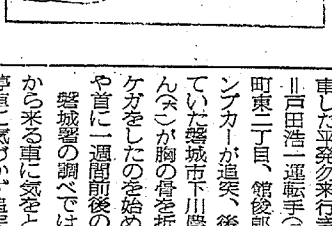 車した平発勿来行き
＝戸田浩一運転手（
町東二丁目、館俊郎
ンプカーが追突、後
ていた磐城市下川
ん（六）が胸の骨を折
ケガをしたのを始め
や首に一週間前後の
磐城署の調べでは
から来る車に気をと
停車に気づかず追突